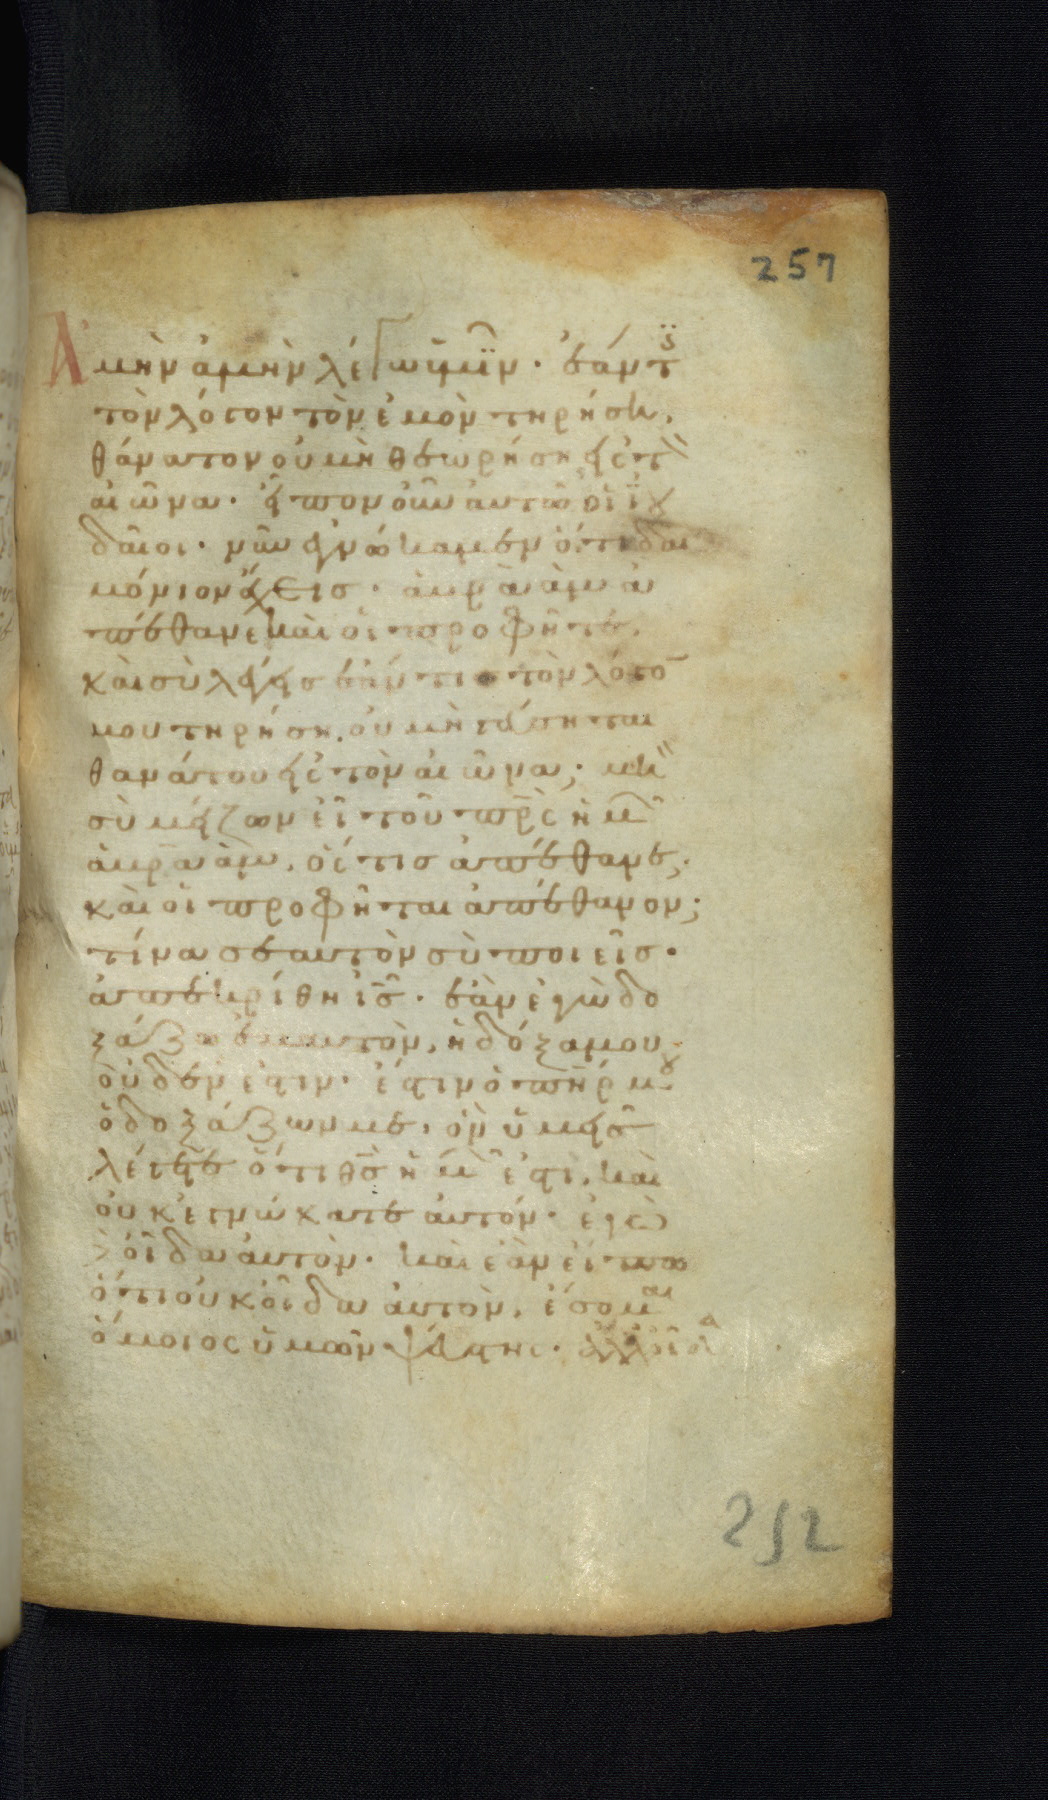 257
Ἀμὴν ἀμὴν λέγω ὑμῖν· ἐάν τις
τὸν λόγον τὸν ἐμὸν τηρήση,
θάνατον οὐ μὴ θεωρήση εἰς τὸν
αἰῶνα· εἶπον οὖν αὐτῶ οἱ ἰου
δαῖοι· νῦν ἐγνώκαμεν ὅτι δαι
μόνιον ἔχεις· ἀβραὰμ ἀ
πέθανε καὶ οἱ προφῆται,
καὶ σὺ λέγεις ἐάν τις τὸν λόγο̄
μου τηρήση, οὐ μὴ γεύσηται
θανάτου εἰς τὸν αἰῶνα; μὴ
σὺ μείζων εἶ τοῦ πρ̅ς ἡμῶν
ἀβραὰμ, ὅστις ἀπέθανε;
καὶ οἱ προφῆται ἀπέθανον;
τίνα σεαυτὸν σὺ ποιεῖς·
ἀπεκρίθη ις̅· ἐὰν ἐγὼ δο
ξάζω ἐμαυτὸν, ἡ δόξα μου
οὐδέν ἐστιν· ἔστιν ὁ πη̅ρ μου
ὁ δοξάζων με, ὃν ὑμεῖς
λέγετε ὅτι θς̅ ἡμῶν ἐστι, καὶ
οὐκ ἐγνώκατε αὐτόν· ἐγὼ
οἶδα αὐτὸν· καὶ ἐὰν εἴπω
ὅτι οὐκ οἶδα αὐτὸν, ἔσομαι
ὅμοιος ὑμῶν ψεύστης· ἀλλ' οἶδα
252